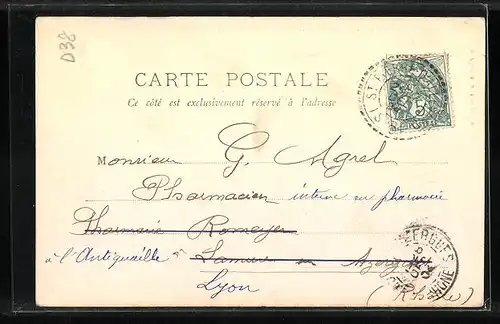 D38
CARTE POSTALE
Ce côté est exclusivement réservé à l'adresse
Monsieur G. Agrel
Pharmacien interne en pharmacie
Pharmacie Romeyer
à l'Antiquaille Lamure sur Azergues
Lyon
(Rhône)